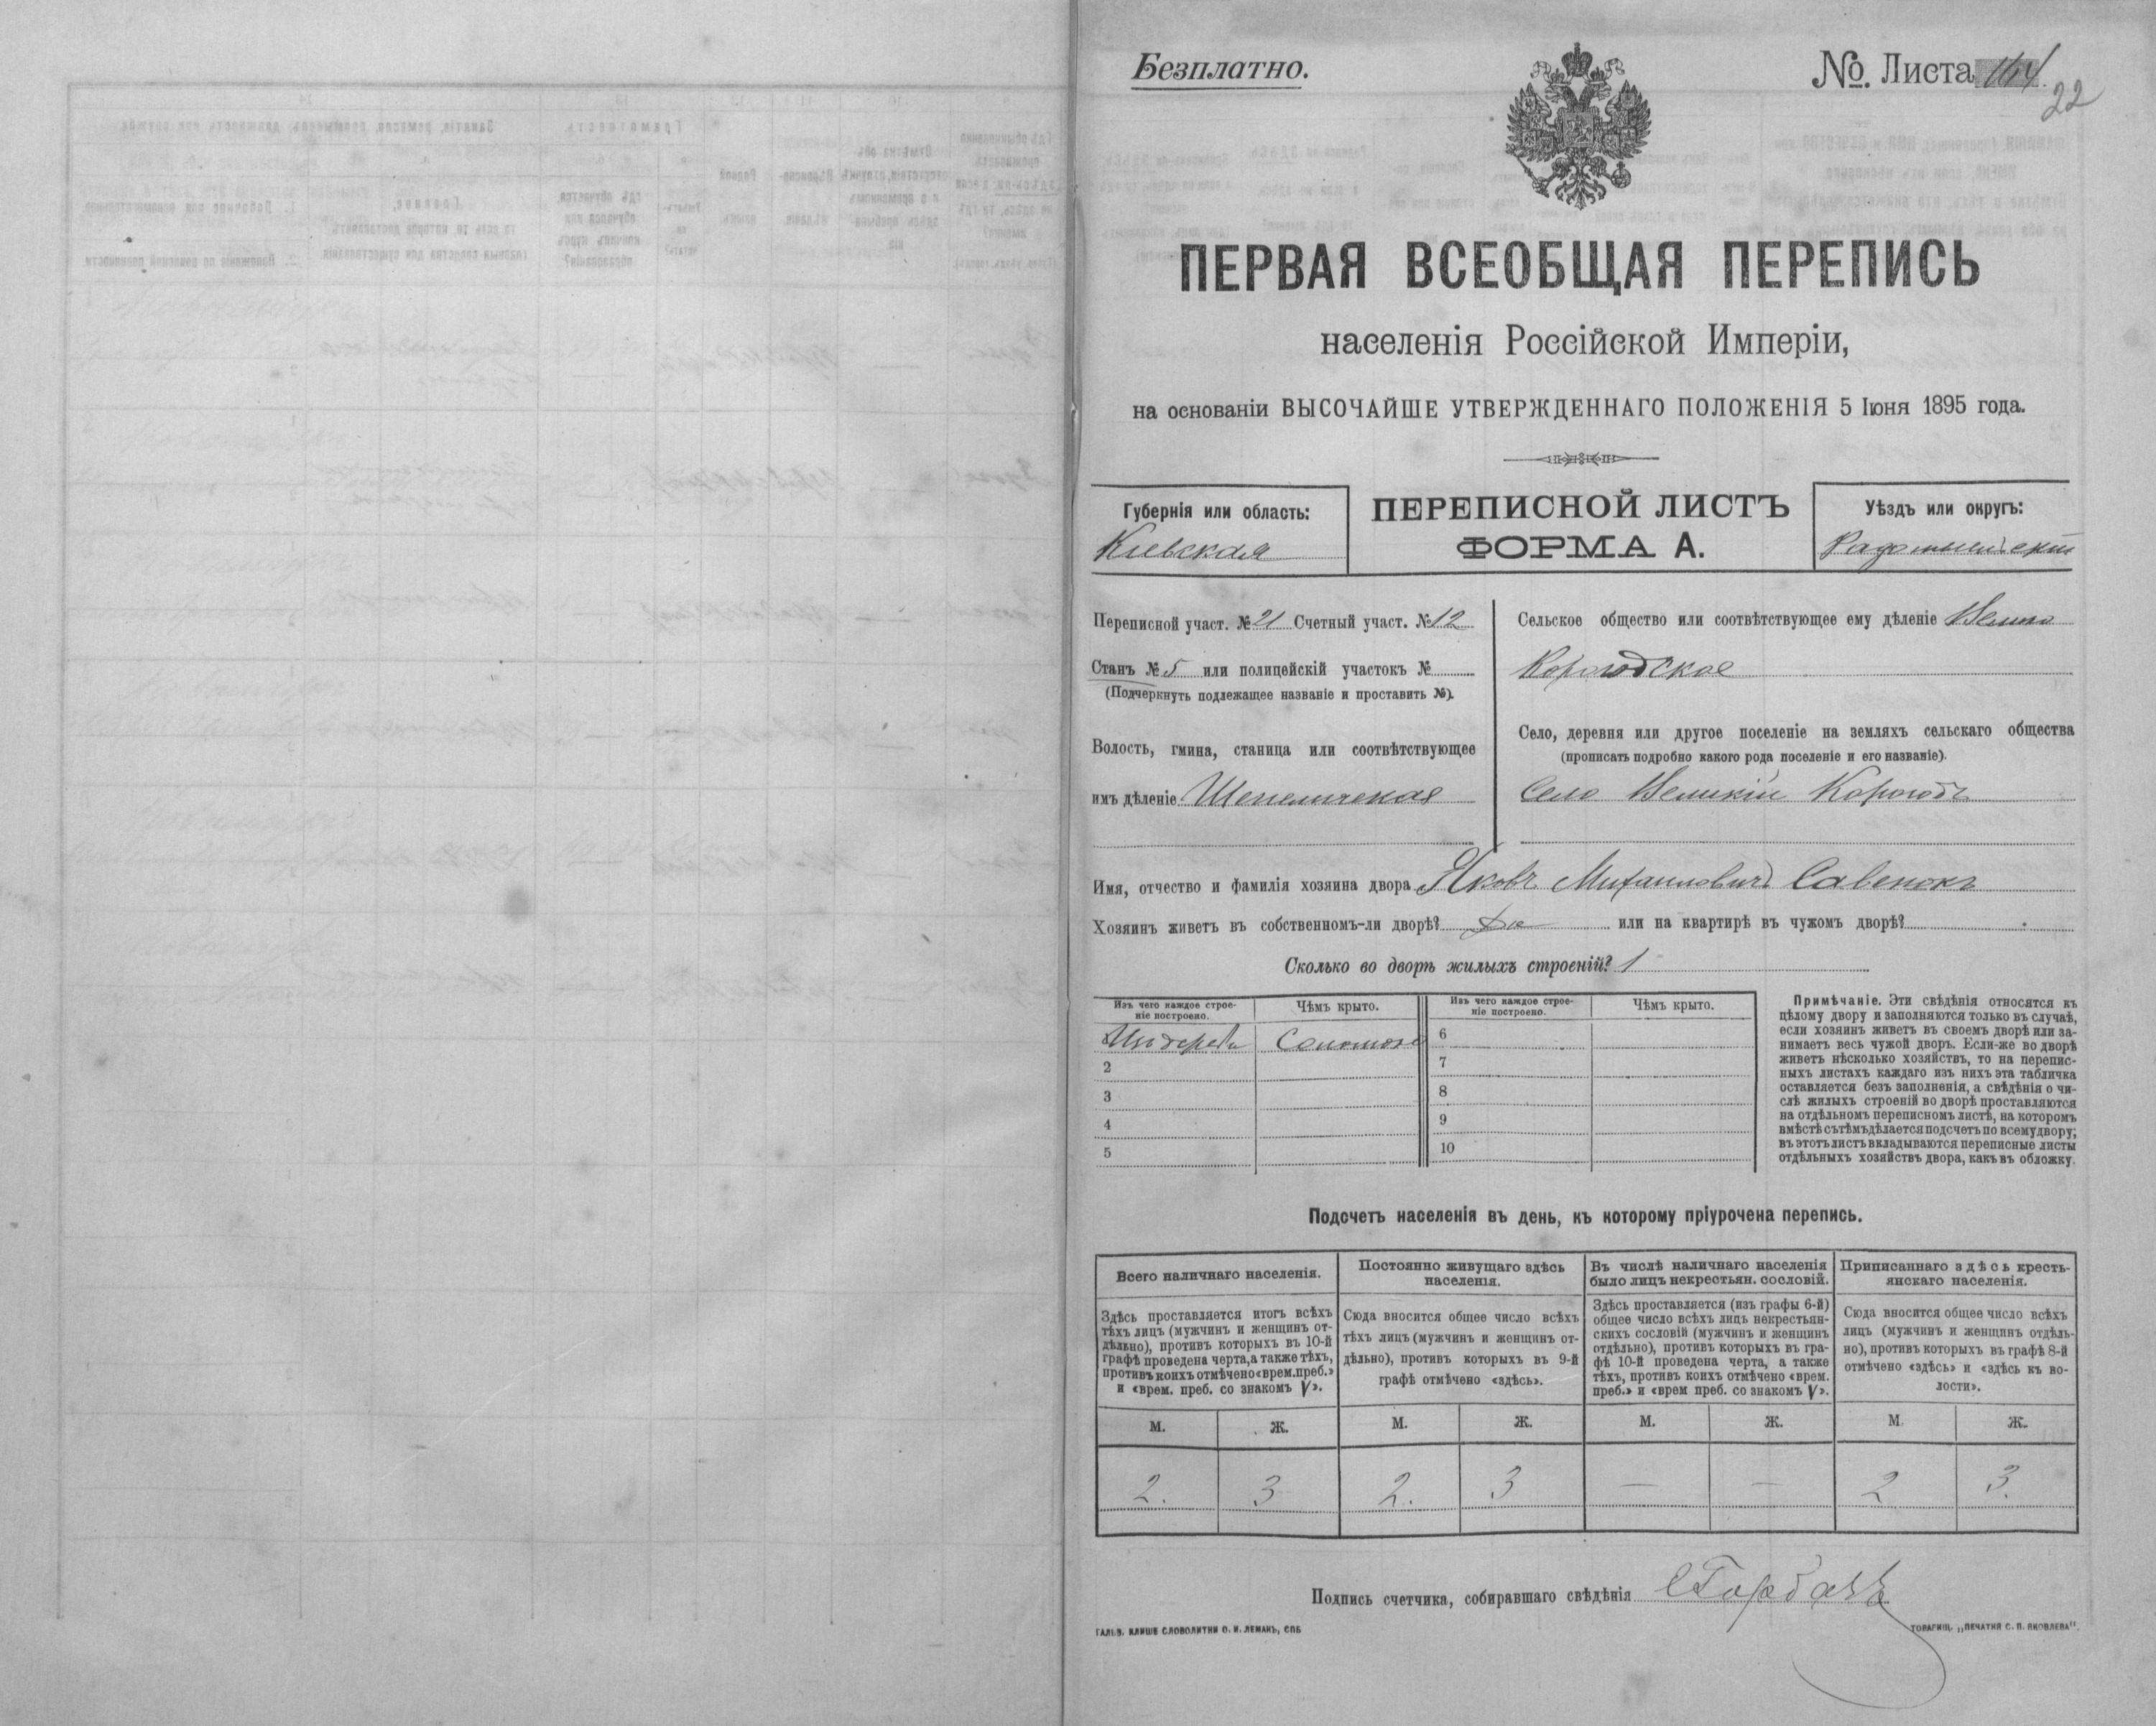 Безплатно.
№ Листа 164
22
ПЕРВАЯ ВСЕОБЩАЯ ПЕРЕПИСЬ
населенія Россійской Имперіи,
на основаніи ВЫСОЧАЙШЕ УТВЕРЖДЕННАГО ПОЛОЖЕНІЯ 5 Іюня 1895 года.
Губернія или область:
Кіевская
ПЕРЕПИСНОЙ ЛИСТЪ
ФОРМА А.
Уѣздъ или округъ:
Радомысльскій
Переписной участ. № 21 Счетный участ. № 12
Станъ № 5 или полицейскій участокъ №
(Подчеркнуть подлежащее названіе и проставить №).
Волость, гмина, станица или соотвѣтствующее
имъ дѣленіе Шепеличская
Сельское общество или соотвѣтствующее ему дѣленіе Велико
Корогодское
Село, деревня или другое поселеніе на земляхъ сельскаго общества
(прописать подробно какого рода поселеніе и его названіе).
Село Великій Корогодъ
Имя, отчество и фамилія хозяина двора Яковъ Михаиловичъ Савенокъ
Хозяинъ живетъ въ собственномъ-ли дворѣ? Да или на квартирѣ въ чужомъ дворѣ?
Сколько во дворѣ жилыхъ строеній? 1
Изъ чего каждое строе-
ніе построено.
Чѣмъ крыто.
Изъ чего каждое строе-
ніе построено.
Чѣмъ крыто.
Изъ дерева Соломою 6
2 7
3 8
4 9
5 10
Примѣчаніе. Эти свѣдѣнія относятся къ
цѣлому двору и заполняются только въ случаѣ,
если хозяинъ живетъ въ своемъ дворѣ или за-
нимаетъ весь чужой дворъ. Если-же во дворѣ
живетъ нѣсколько хозяйствъ, то на перепис-
ныхъ листахъ каждаго изъ нихъ эта табличка
оставляется безъ заполненія, а свѣдѣнія о чи-
слѣ жилыхъ строеній во дворѣ проставляются
на отдѣльномъ переписномъ листѣ, на которомъ
вмѣстѣ съ тѣмъ дѣлается подсчетъ по всему двору;
въ этотъ листъ вкладываются переписные листы
отдѣльныхъ хозяйствъ двора, какъ въ обложку.
Подсчетъ населенія въ день, къ которому пріурочена перепись.
Всего наличнаго населенія.
Здѣсь проставляется итогъ всѣхъ
тѣхъ лицъ (мужчинъ и женщинъ от-
дѣльно), противъ которыхъ въ 10-й
графѣ проведена черта, а также тѣхъ,
противъ коихъ отмѣчено «врем. преб.»
и «врем. преб. со знакомъ V».
Постоянно живущаго здѣсь
населенія.
Сюда вносится общее число всѣхъ
тѣхъ лицъ (мужчинъ и женщинъ от-
дѣльно), противъ которыхъ въ 9-й
графѣ отмѣчено «здѣсь».
Въ числѣ наличнаго населенія
было лицъ некрестьян. сословій.
Здѣсь проставляется (изъ графы 6-й)
общее число всѣхъ лицъ некрестьян-
скихъ сословій (мужчинъ и женщинъ
отдѣльно), противъ которыхъ въ гра-
фѣ 10-й проведена черта, а также
тѣхъ, противъ коихъ отмѣчено «врем.
преб.» и «врем преб. со знакомъ V».
Приписаннаго здѣсь кресть-
янскаго населенія.
Сюда вносится общее число всѣхъ
лицъ (мужчинъ и женщинъ отдѣль-
но), противъ которыхъ въ графѣ 8-й
отмѣчено «здѣсь» и «здѣсь къ во-
лости».
М. Ж. М. Ж. М. Ж. М. Ж.
2. 3 2. 3 — — 2 3.
Подпись счетчика, собиравшаго свѣдѣнія СГорбачъ
ГАЛЬВ. КЛИШЕ СЛОВОЛИТНИ О. И. ЛЕМАНЪ, СПБ
ТОВАРИЩ. „ПЕЧАТНЯ С. П. ЯКОВЛЕВА".